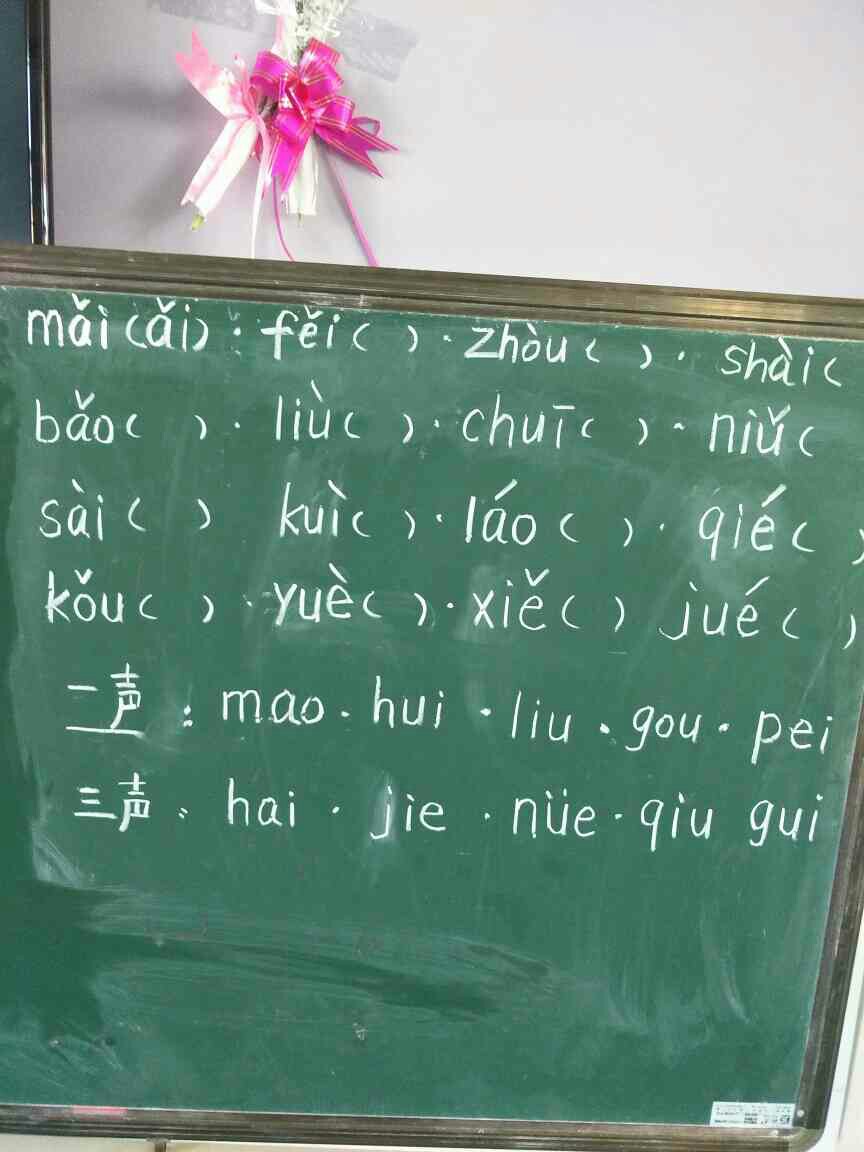 mǎi(ǎi)· fěi( )· zhòu( )· shài(
bǎo( )· liù( )· chuī( )· niǔ(
sài( ) kuì( )· láo( )· qié( )
kǒu( )· yuè( )· xiě( ) jué( )
一声: mao· hui · liu · gou· pei
三声: hai · jie · nüe· qiu gui